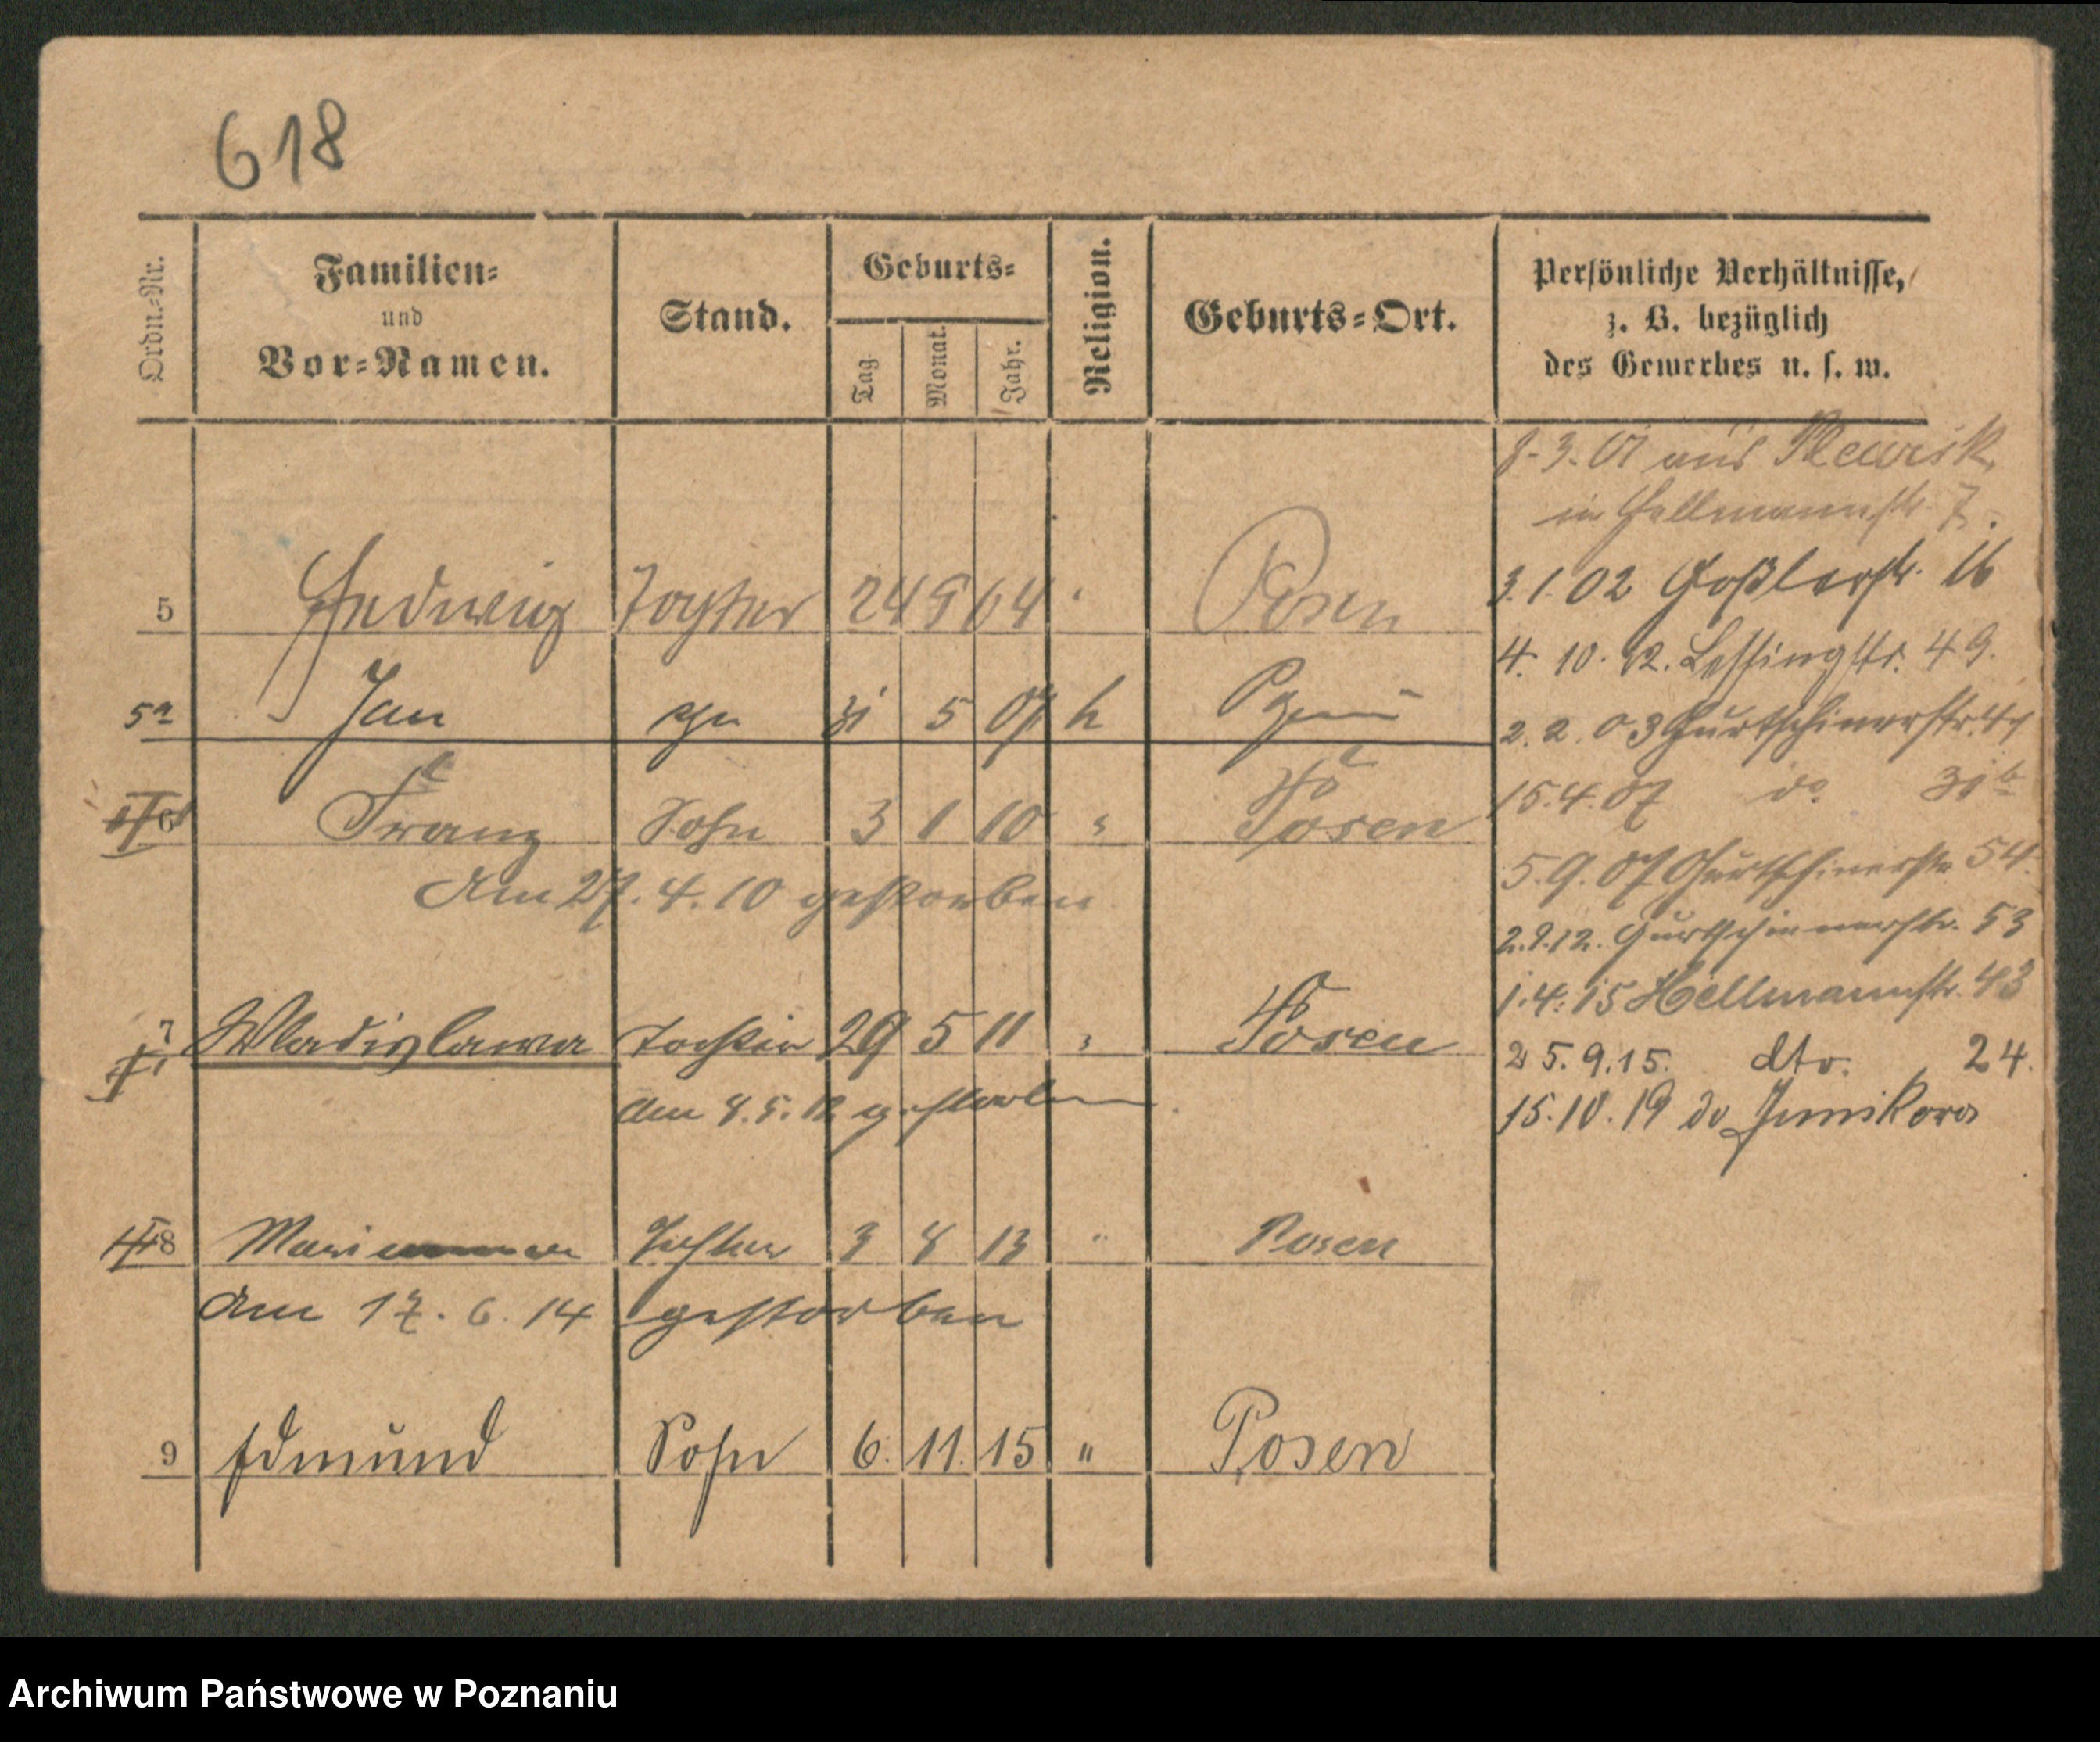 618
Ordn.-Nr.
Familien-
und
Vor-Namen.
Stand.
Geburts-
Tag.
Monat.
Jahr.
Religion.
Geburts-Ort.
Persönliche Verhältnisse,
z. B. bezüglich
des Gewerbes u. s. w.
3.01 aus
in Hellmannstr. 7.
5 Hedwig Tochter 24 9 04 Posen
3.1.02 Goßlerstr. 16
4. 10. 02. Lessingstr. 49.
5a Jan 31 5 07 k
2. 2. 03 Gurtschinerstr.
15.4.07 do 31b
6 Franz Sohn 3 1 10 " Posen
5.9.07 Gurtschinerstr. 54.
Am 27. 4. 10 gestorben
2.9.12. Gurtschinerstr. 53
1.4.15 Hellmannstr. 43
7 Wladislawa Tochter 29 5 11 " Posen
25.9.15. dto. 24.
am 8.5.12 gestorben.
15.10.19 do Junikowo
8 Tochter 3 8 13 " Posen
am 17. 6. 14 gestorben
9 Edmund Sohn 6. 11. 15 " Posen
Archiwum Państwowe w Poznaniu